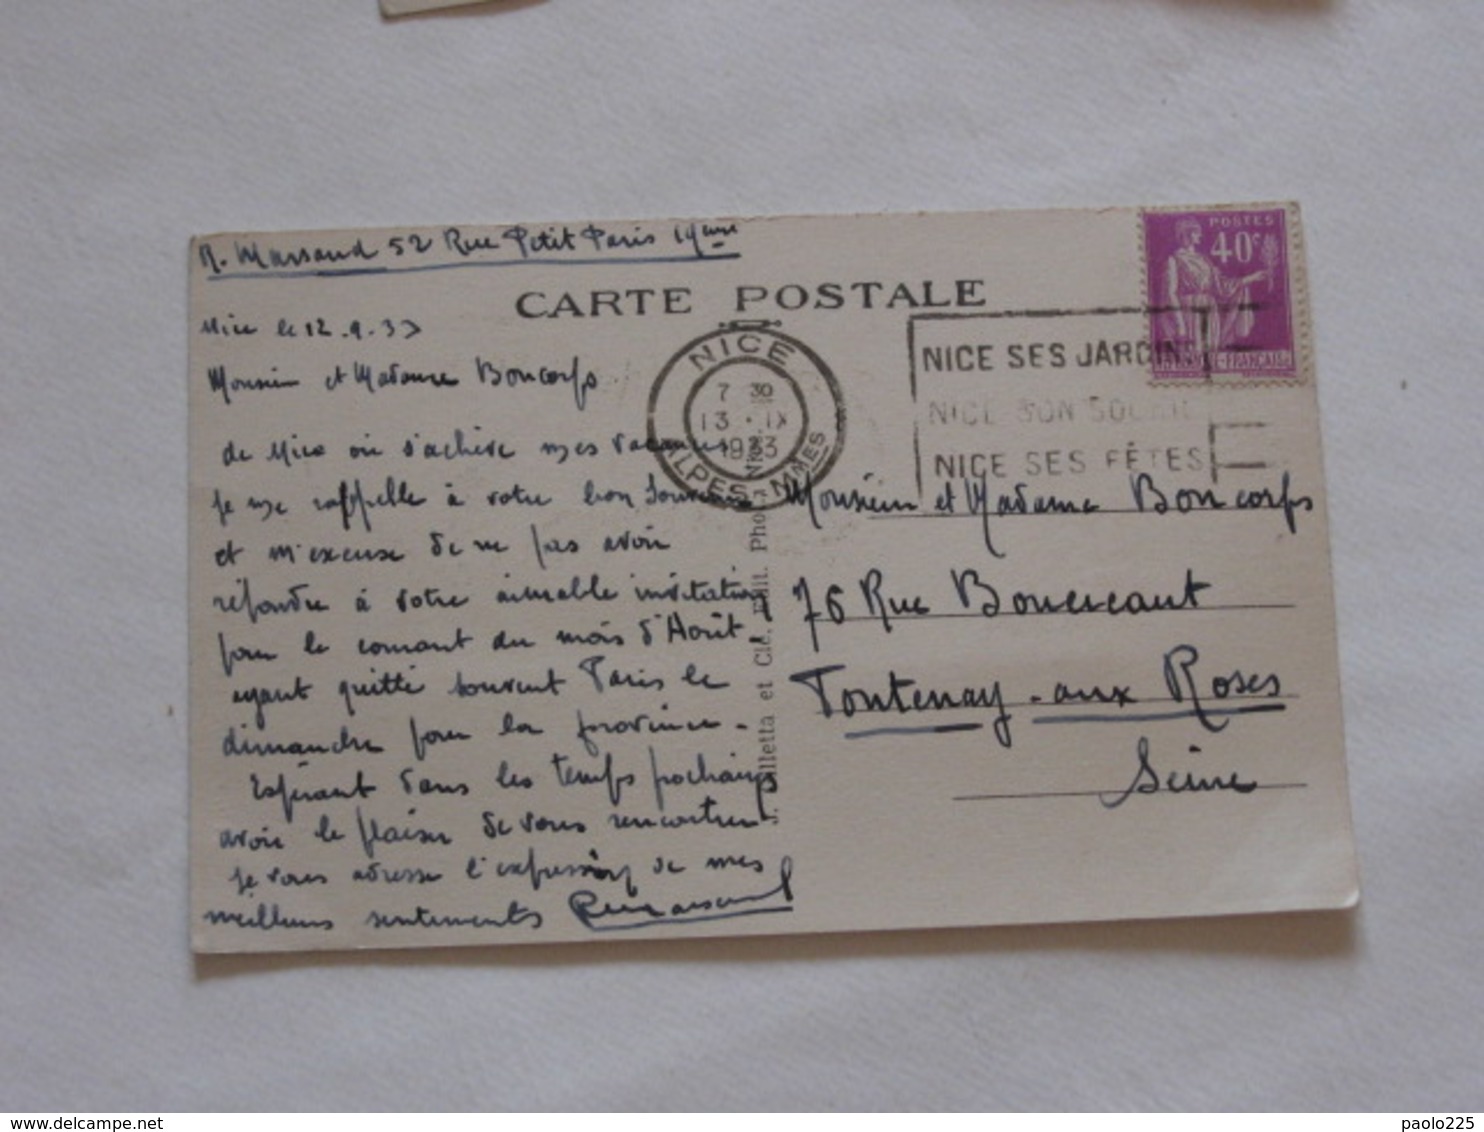 R. Marsaud 52 Rue Petit Paris 19ème
CARTE POSTALE
POSTES
40c
Nice le 12.9.33
Monsieur et Madame Boncorps
de Nice où s'achève mes vacances
je me rappelle à votre bon Souvenir
et m'excuse de ne pas avoir
répondre à votre aimable invitation
pour le courant du mois d'Août.
ayant quitté souvent Paris le
dimanche pour la province.
Espérant dans les temps prochains
avoir le plaisir de vous rencontrer
je vous adresse l'expression de mes
meilleurs sentiments
NICE
7 30
13 . IX
1933
ALPES Mmes
NICE SES JARDINS
NICE SON SOLEIL
NICE SES FÊTES
lletta et Cie. Edit. Phot. Nice.
Monsieur et Madame Boncorps
76 Rue Boucicaut
Fontenay-aux Roses
Seine
delcampe.net
paolo225